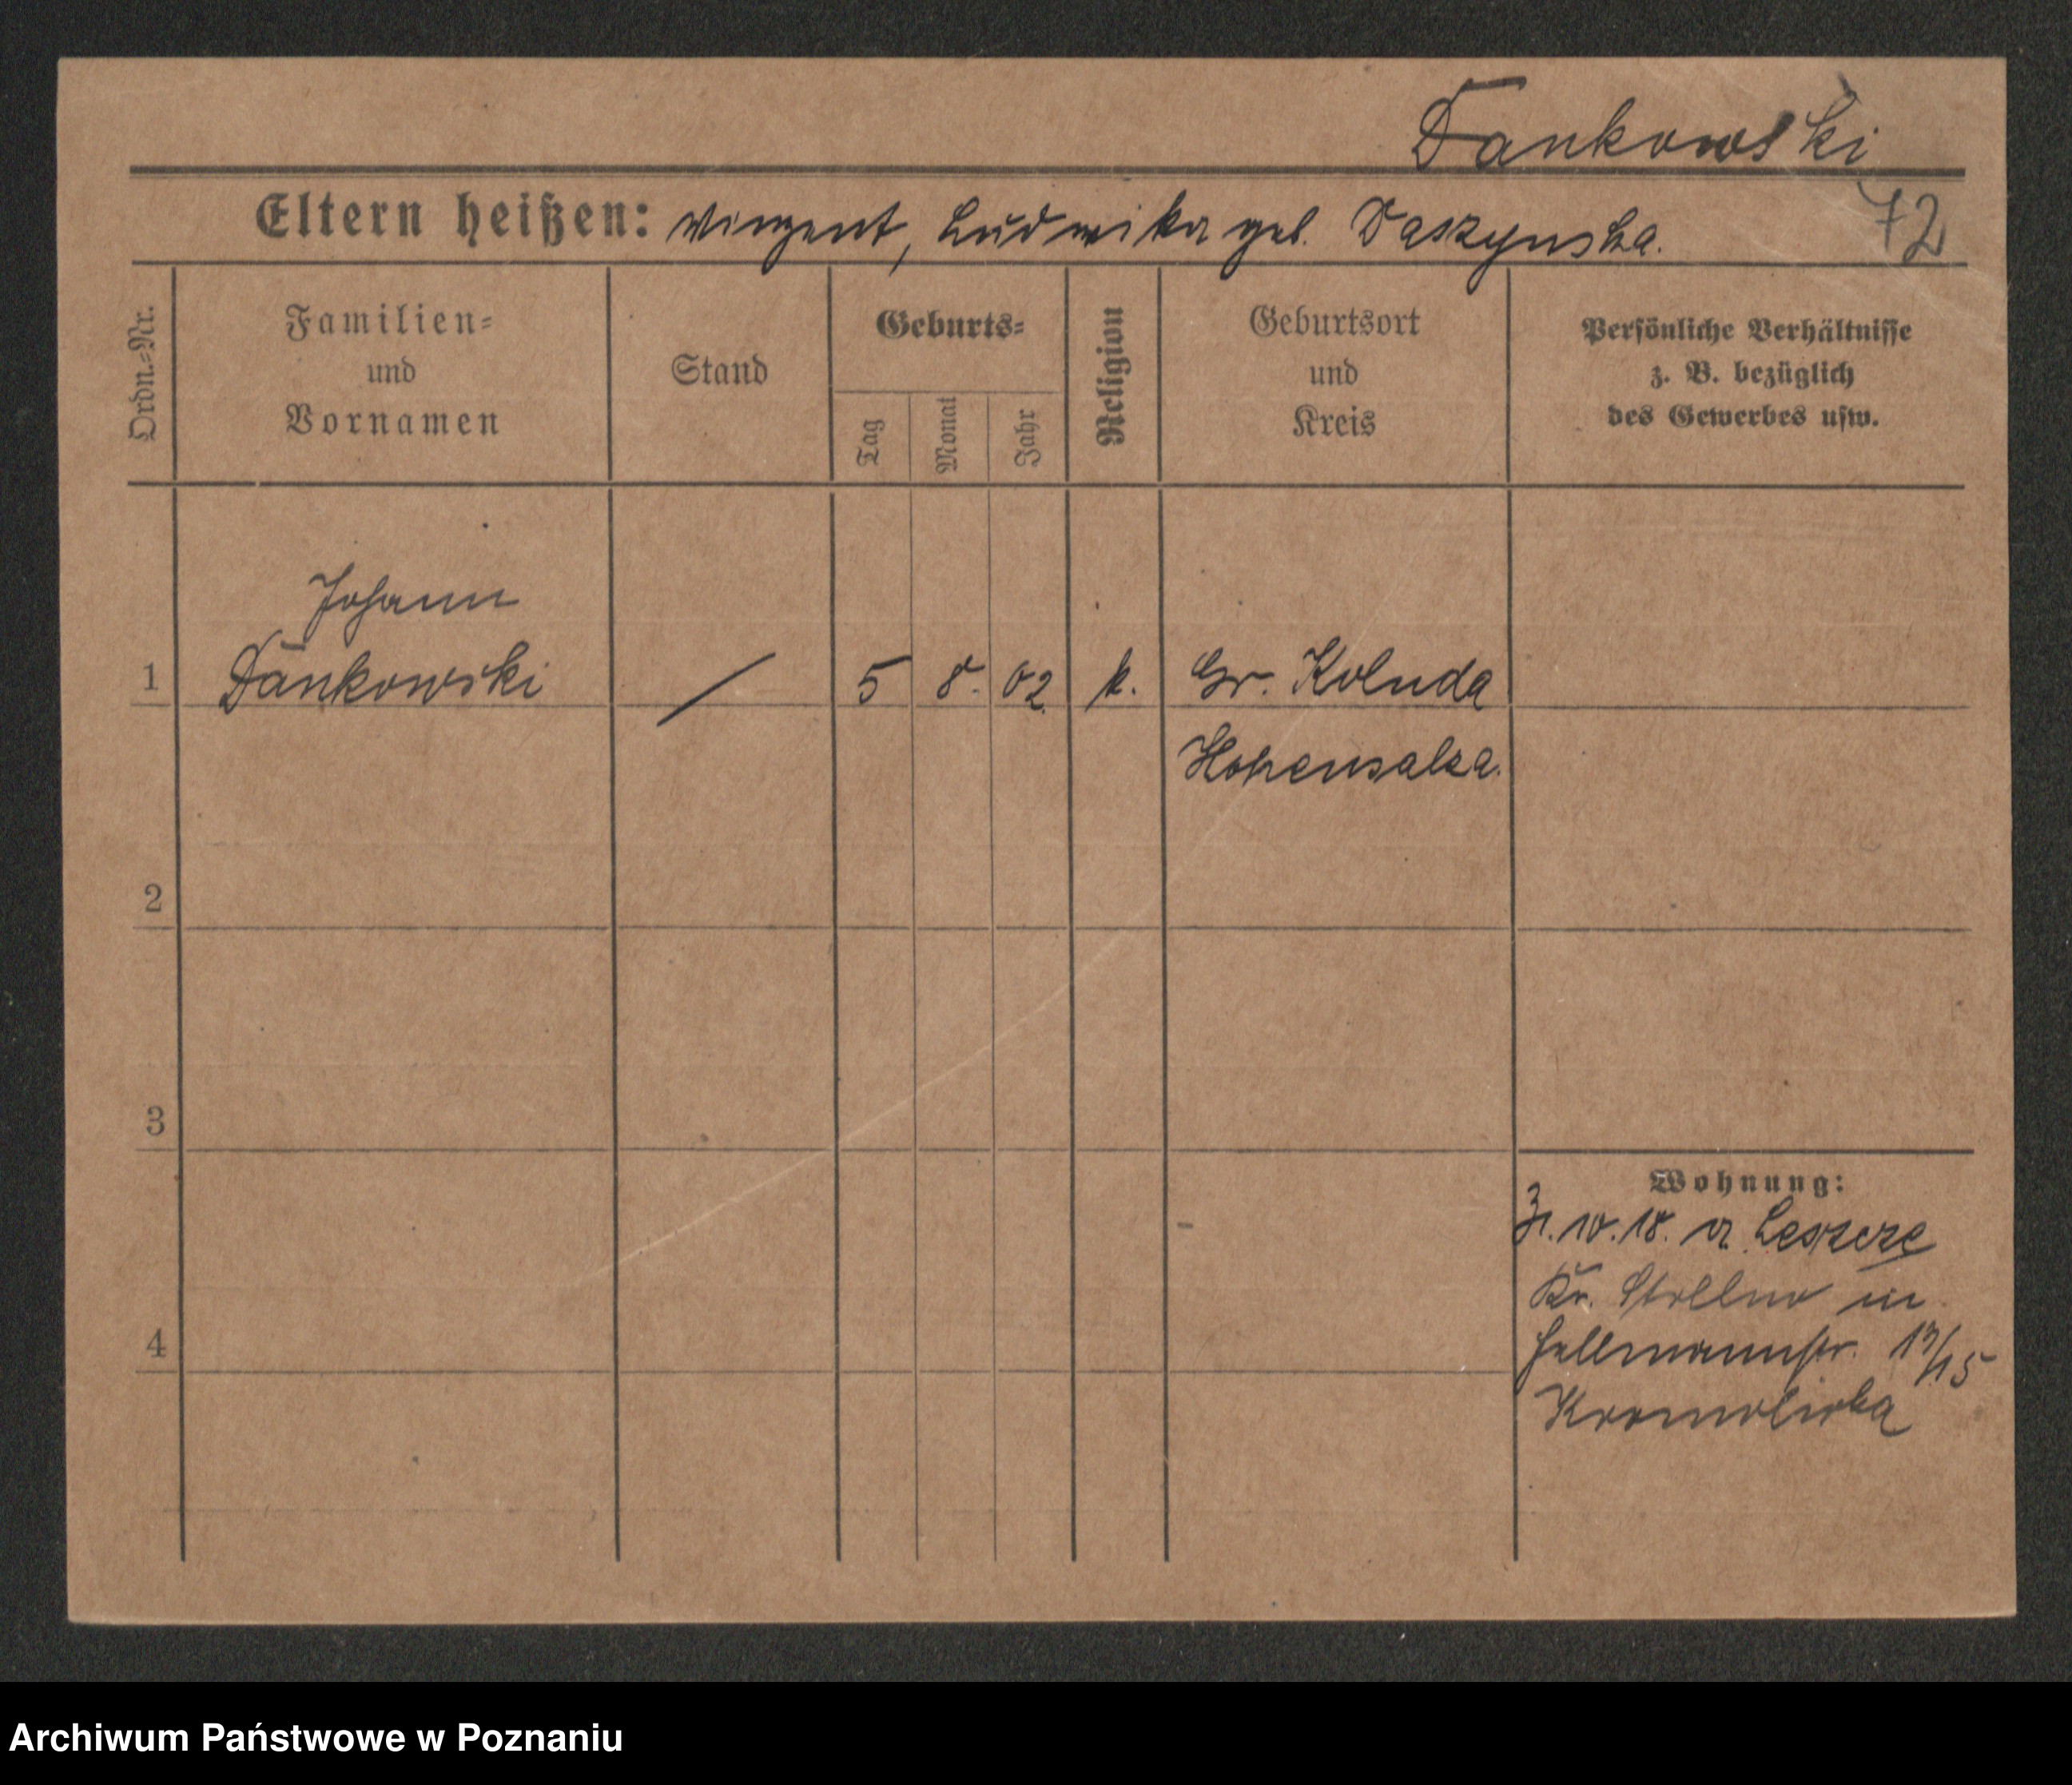 Dankowski
Eltern heißen: Vinzent, Ludwika geb. Daszynska.
72
Ordn.-Nr.
Familien-
und
Vornamen
Stand
Geburts-
Tag
Monat
Jahr
Religion
Geburtsort
und
Kreis
Persönliche Verhältnisse
z. B. bezüglich
des Gewerbes usw.
Johann
1 Dankowski / 5 8. 02. k. Gr. Koluda
Hohensalza.
2
3
4
Wohnung:
10. 18.
Kr. in
Archiwum Państwowe w Poznaniu